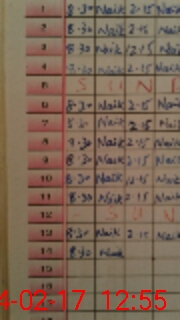 1 8.30 Naik 2.15 Naik
2 8.30 Naik 2.15 Naik
3 8.30 Naik 12.15 Naik
4 8.30 Naik 2.15 Naik
5 S U N
6 8.30 Naik 2.15 Naik
7 8.30 Naik 2.15 Naik
8 8.30 Naik 2.15 Naik
9 8.30 Naik 2.15 Naik
10 8.30 Naik 12.15 Naik
11 8.30 Naik 2.15 Naik
12 S U N
13 8.30 Naik 2.15 Naik
14 8.30 Naik
4-02-17 12:55